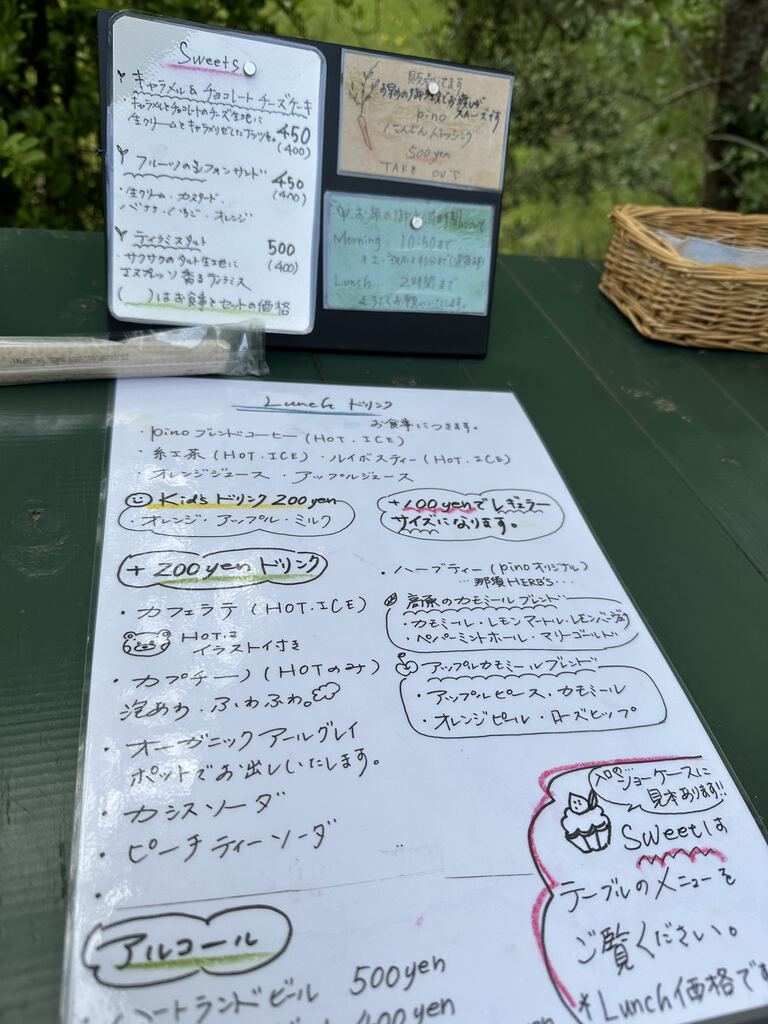 Sweets
キャラメル & チョコレート チーズケーキ
・キャラメルとチョコレートのチーズ生地に
生クリームとキャラメリゼしたナッツを。 450
(400)
フルーツのシフォンサンド 450
(400)
・生クリーム・カスタード
バナナ・いちご・オレンジ
ティラミスタルト 500
サクサクのタルト生地に (400)
エスプレッソ香るティラミス
( )はお食事とセットの価格
販売してます
pino
にんじんドレッシング
500yen
TAKE OUT
Morning 10:50まで
Lunch 2時間まで
よろしくお願いいたします。
Lunch ドリンク
お食事につきます。
・pino ブレンドコーヒー (HOT.ICE)
・紅茶 (HOT.ICE) ・ルイボスティー (HOT.ICE)
・オレンジジュース ・アップルジュース
Kid's ドリンク 200yen
・オレンジ・アップル・ミルク
+100yenでレギュラー
サイズになります。
+ 200yen ドリンク
・カフェラテ (HOT.ICE)
HOTは
イラスト付き
・カプチーノ (HOTのみ)
泡あわ・ふわふわ。
・オーガニックアールグレイ
ポットでお出しいたします。
・カシスソーダ
・ピーチティーソーダ
・ハーブティー (pinoオリジナル)
…那須HERB's…
高原のカモミールブレンド
・カモミール・レモンマートル・レモンバーベナ
・ペパーミントホール・マリーゴールド
アップルカモミールブレンド
・アップルピース・カモミール
・オレンジピール・ローズヒップ
入口の…ショーケースに
見本あります!!
Sweetは
テーブルのメニューを
ご覧ください。
*Lunch価格です
アルコール
・ハートランドビール 500yen
400yen